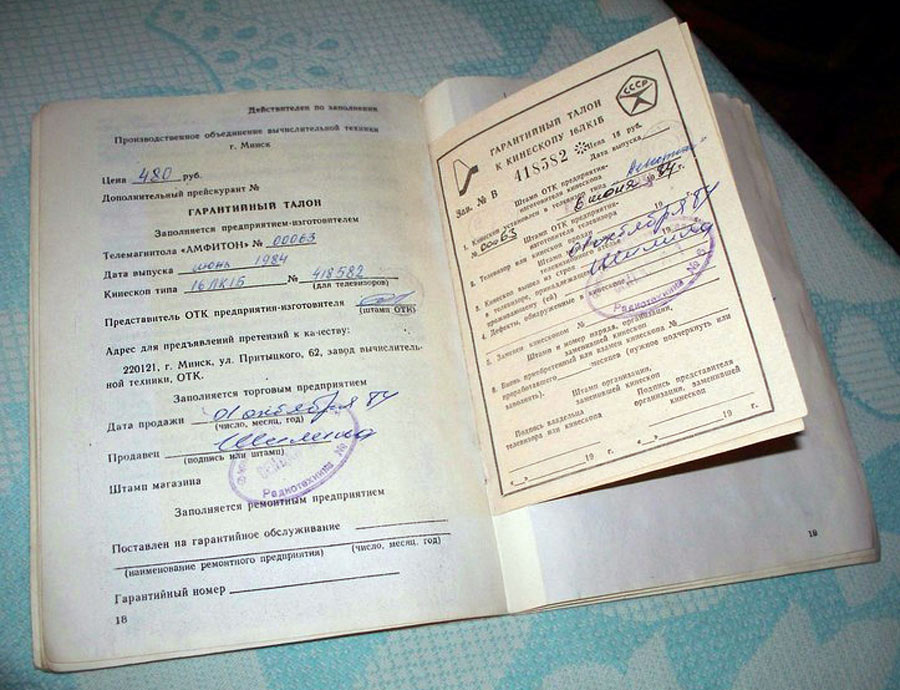 Действителен по заполнении
Производственное объединение вычислительной техники
г. Минск
Цена 480 руб.
Дополнительный прейскурант №
ГАРАНТИЙНЫЙ ТАЛОН
Заполняется предприятием-изготовителем
Телемагнитола «АМФИТОН» № 00063
Дата выпуска июнь 1984
Кинескоп типа 16ЛК1Б № 418582
(для телевизоров)
Представитель ОТК предприятия-изготовителя
(штамп ОТК)
Адрес для предъявления претензий к качеству:
220121, г. Минск, ул. Притыцкого, 62, завод вычислитель-
ной техники, ОТК.
Заполняется торговым предприятием
Дата продажи 01 октября 84
(число, месяц, год)
Продавец
(подпись или штамп)
Радиотехника №
Штамп магазина
Заполняется ремонтным предприятием
Поставлен на гарантийное обслуживание
(наименование ремонтного предприятия) (число, месяц, год)
Гарантийный номер
18
СССР
ГАРАНТИЙНЫЙ ТАЛОН
К КИНЕСКОПУ 16ЛК1Б
Зав. № В 418582 Цена 18 руб.
Штамп ОТК предприятия- Дата выпуска
изготовителя кинескопа
1. Кинескоп установлен в телевизор типа
№ 00063 6 июня 1984 г.
Штамп ОТК предприятия-
изготовителя телевизора
2. Телевизор или кинескоп продан 19 г.
Штамп 01 октября 84
3. Кинескоп вышел из строя 19
в телевизоре, принадлежащем
проживающему (ей)
4. Дефекты, обнаруженные в кинескопе
Радиотехника №
5. Заменен кинескопом №
Штамп и номер наряда, организации,
заменившей кинескоп
6. Вновь приобретенный или взамен кинескопа №
проработавшего месяцев (нужное подчеркнуть или
заполнить).
Штамп организации,
заменившей кинескоп
Подпись владельца
телевизора или кинескопа
Подпись представителя
организации, заменившей
кинескоп
«__» 19 г.
«__» 19 г.
19